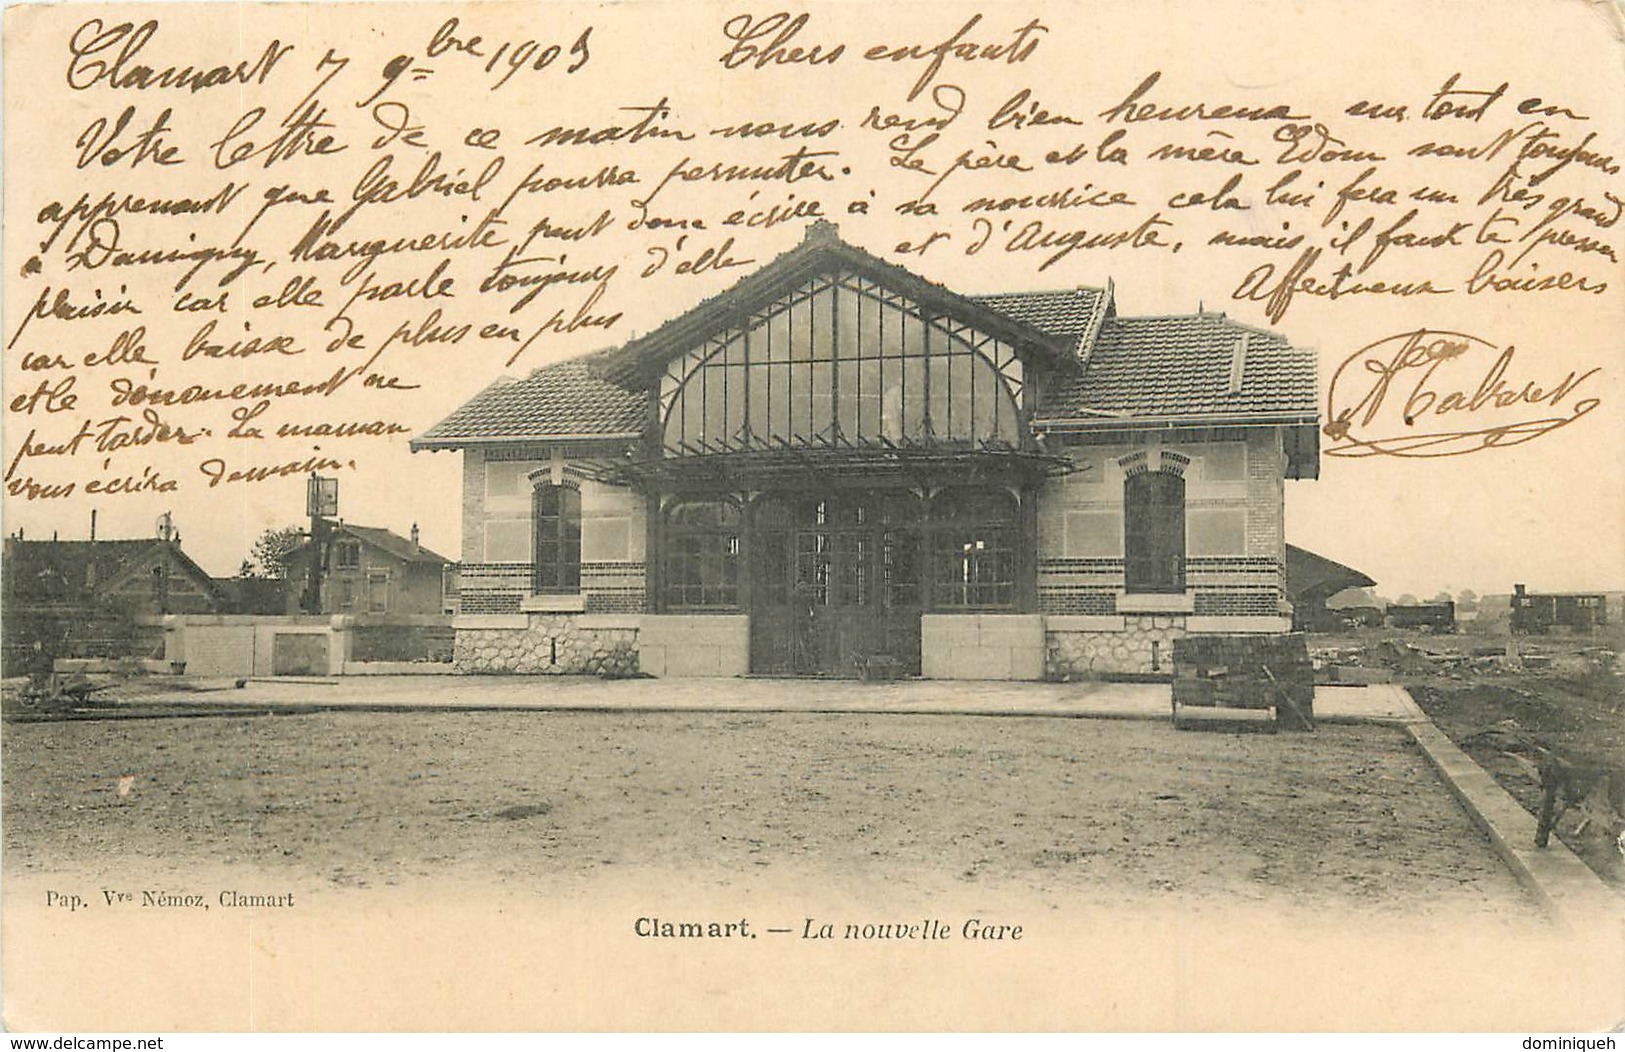 Clamart 7 9bre 1903 Chers enfants
Votre lettre de ce matin nous rend bien heureux surtout en
apprenant que Gabriel pourra permuter. Le père et la mère Edom sont toujours
à Damigny, Marguerite peut donc écrire à sa nourrice cela lui fera un très grand
plaisir car elle parle toujours d'elle et d'Auguste, mais il faut te presser
car elle baisse de plus en plus Affectueux baisers
et le dénouement ne
peut tarder. La maman
vous écrira demain.
Tabaret
Pap. Vve Némoz, Clamart
Clamart. — La nouvelle Gare
www.delcampe.net
dominiqueh